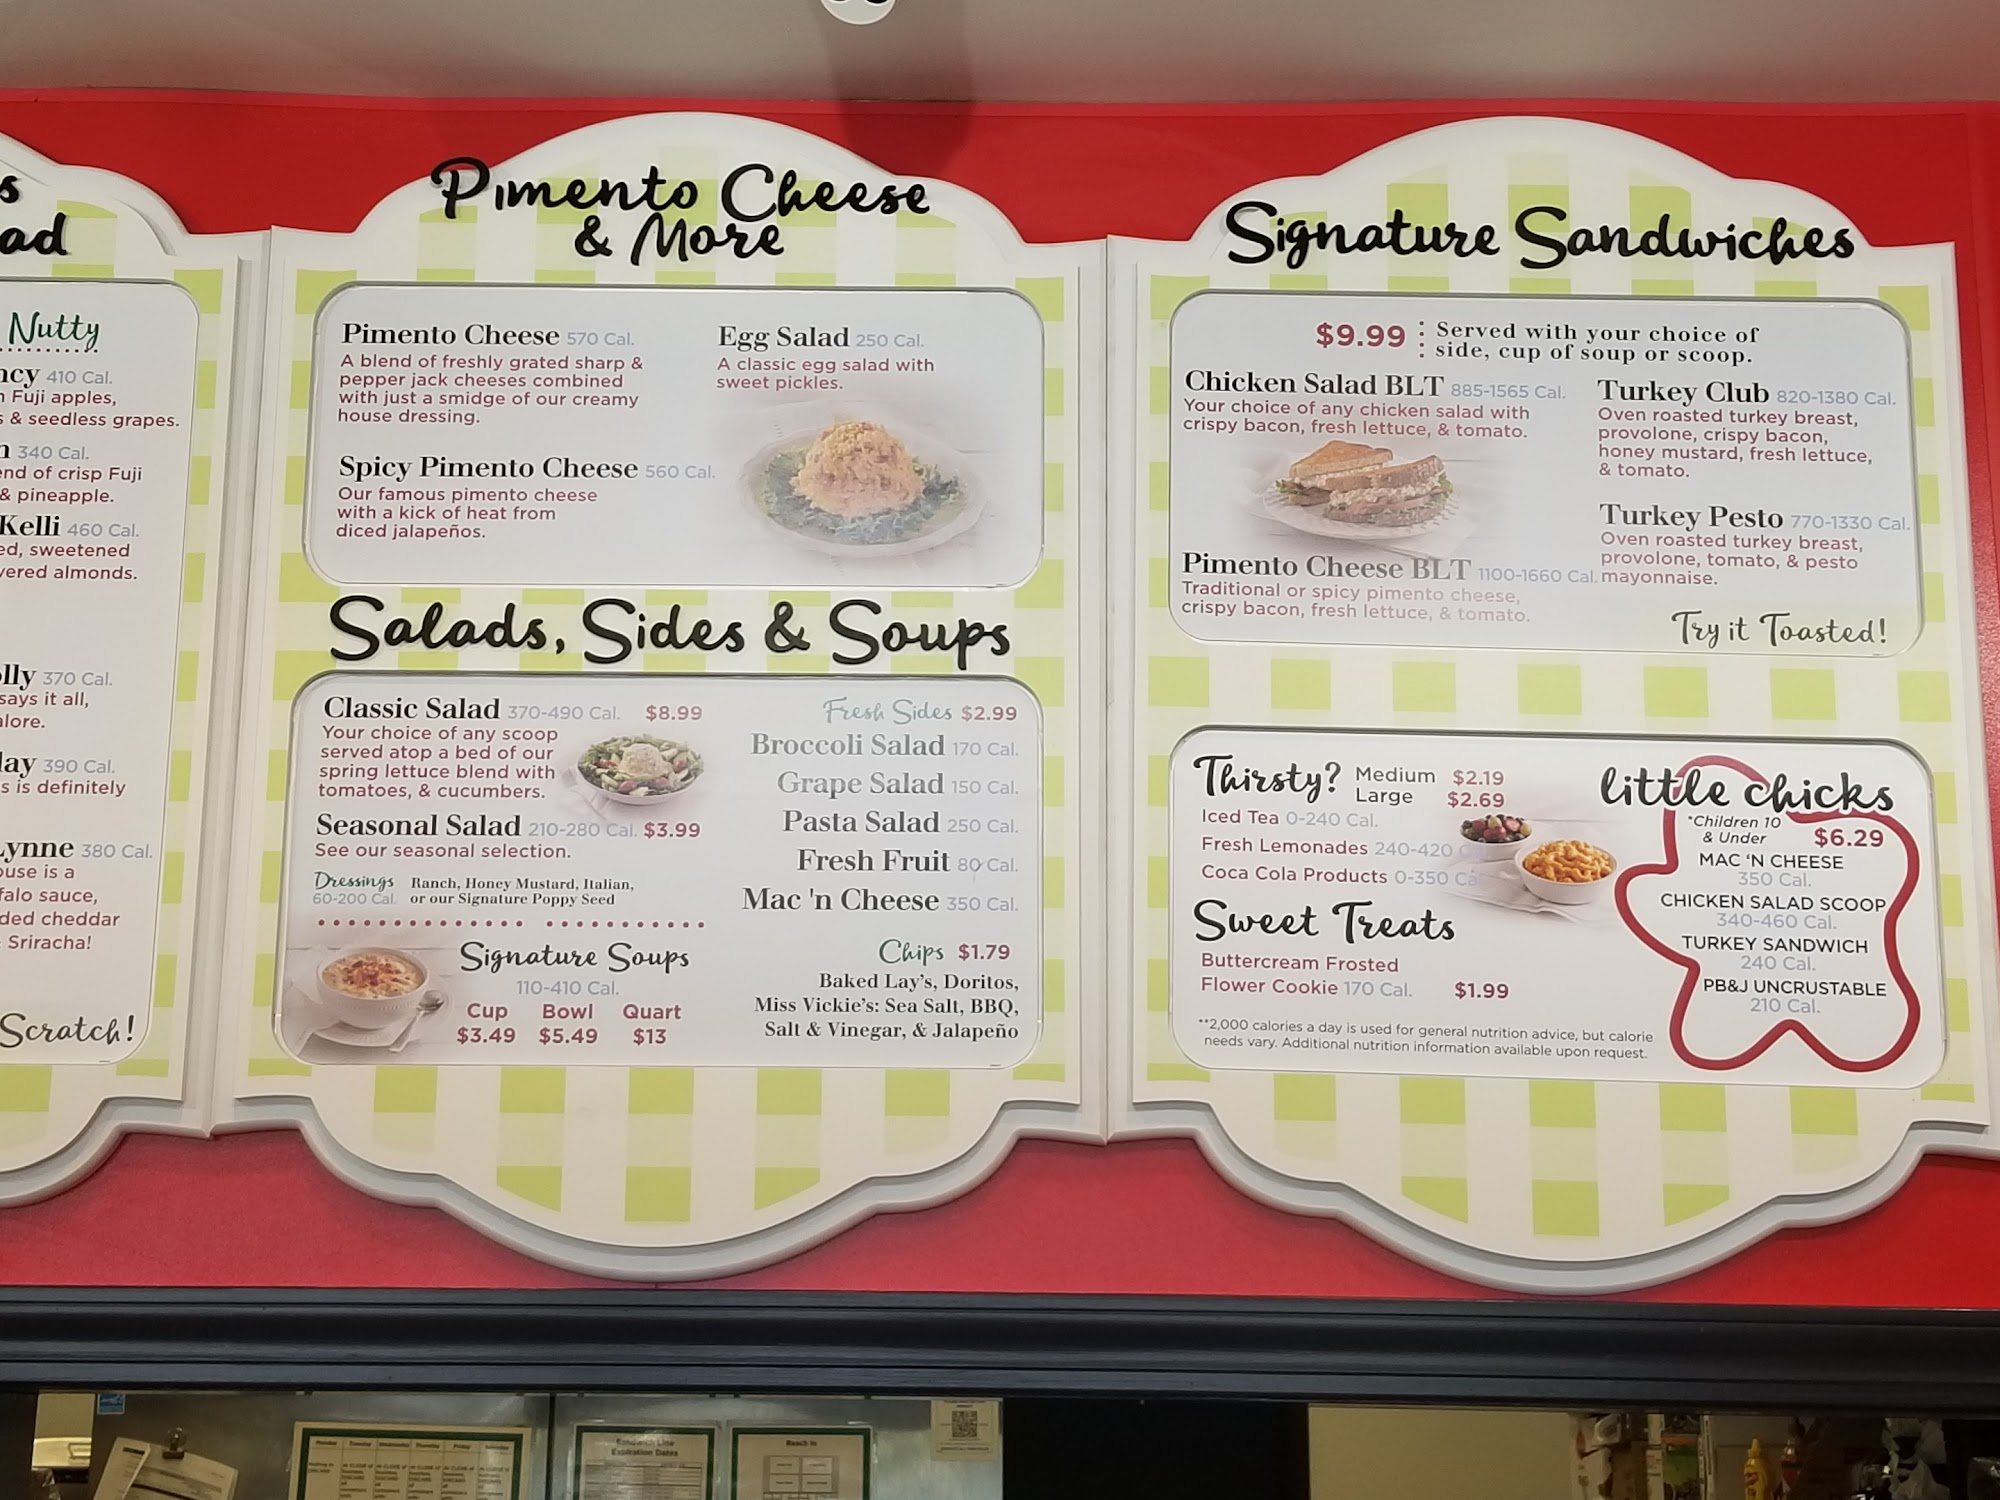 Nutty
410 Cal.
Fuji apples,
& seedless grapes.
340 Cal.
of crisp Fuji
& pineapple.
Kelli 460 Cal.
sweetened
almonds.
370 Cal.
says it all,
390 Cal.
is definitely
Lynne 380 Cal.
is a
sauce,
cheddar
Sriracha!
Scratch!
Pimento Cheese
& More
Pimento Cheese 570 Cal.
A blend of freshly grated sharp &
pepper jack cheeses combined
with just a smidge of our creamy
house dressing.
Spicy Pimento Cheese 560 Cal.
Our famous pimento cheese
with a kick of heat from
diced jalapeños.
Egg Salad 250 Cal.
A classic egg salad with
sweet pickles.
Salads, Sides & Soups
Classic Salad 370-490 Cal. $8.99
Your choice of any scoop
served atop a bed of our
spring lettuce blend with
tomatoes, & cucumbers.
Seasonal Salad 210-280 Cal. $3.99
See our seasonal selection.
Dressings Ranch, Honey Mustard, Italian,
60-200 Cal. or our Signature Poppy Seed
Signature Soups
110-410 Cal.
Cup Bowl Quart
$3.49 $5.49 $13
Fresh Sides $2.99
Broccoli Salad 170 Cal.
Grape Salad 150 Cal.
Pasta Salad 250 Cal.
Fresh Fruit 80 Cal.
Mac 'n Cheese 350 Cal.
Chips $1.79
Baked Lay's, Doritos,
Miss Vickie's: Sea Salt, BBQ,
Salt & Vinegar, & Jalapeño
Signature Sandwiches
$9.99 Served with your choice of
side, cup of soup or scoop.
Chicken Salad BLT 885-1565 Cal.
Your choice of any chicken salad with
crispy bacon, fresh lettuce, & tomato.
Pimento Cheese BLT 1100-1660 Cal.
Traditional or spicy pimento cheese,
crispy bacon, fresh lettuce, & tomato.
Turkey Club 820-1380 Cal.
Oven roasted turkey breast,
provolone, crispy bacon,
honey mustard, fresh lettuce,
& tomato.
Turkey Pesto 770-1330 Cal.
Oven roasted turkey breast,
provolone, tomato, & pesto
mayonnaise.
Try it Toasted!
Thirsty? Medium $2.19
Large $2.69
Iced Tea 0-240 Cal.
Fresh Lemonades 240-420
Coca Cola Products 0-350
Sweet Treats
Buttercream Frosted
Flower Cookie 170 Cal. $1.99
**2,000 calories a day is used for general nutrition advice, but calorie
needs vary. Additional nutrition information available upon request.
little chicks
*Children 10
& Under $6.29
MAC 'N CHEESE
350 Cal.
CHICKEN SALAD SCOOP
340-460 Cal.
TURKEY SANDWICH
240 Cal.
PB&J UNCRUSTABLE
210 Cal.
Monday Tuesday Wednesday Thursday Friday Saturday
Sandwich Line
Expiration Dates
Reach In